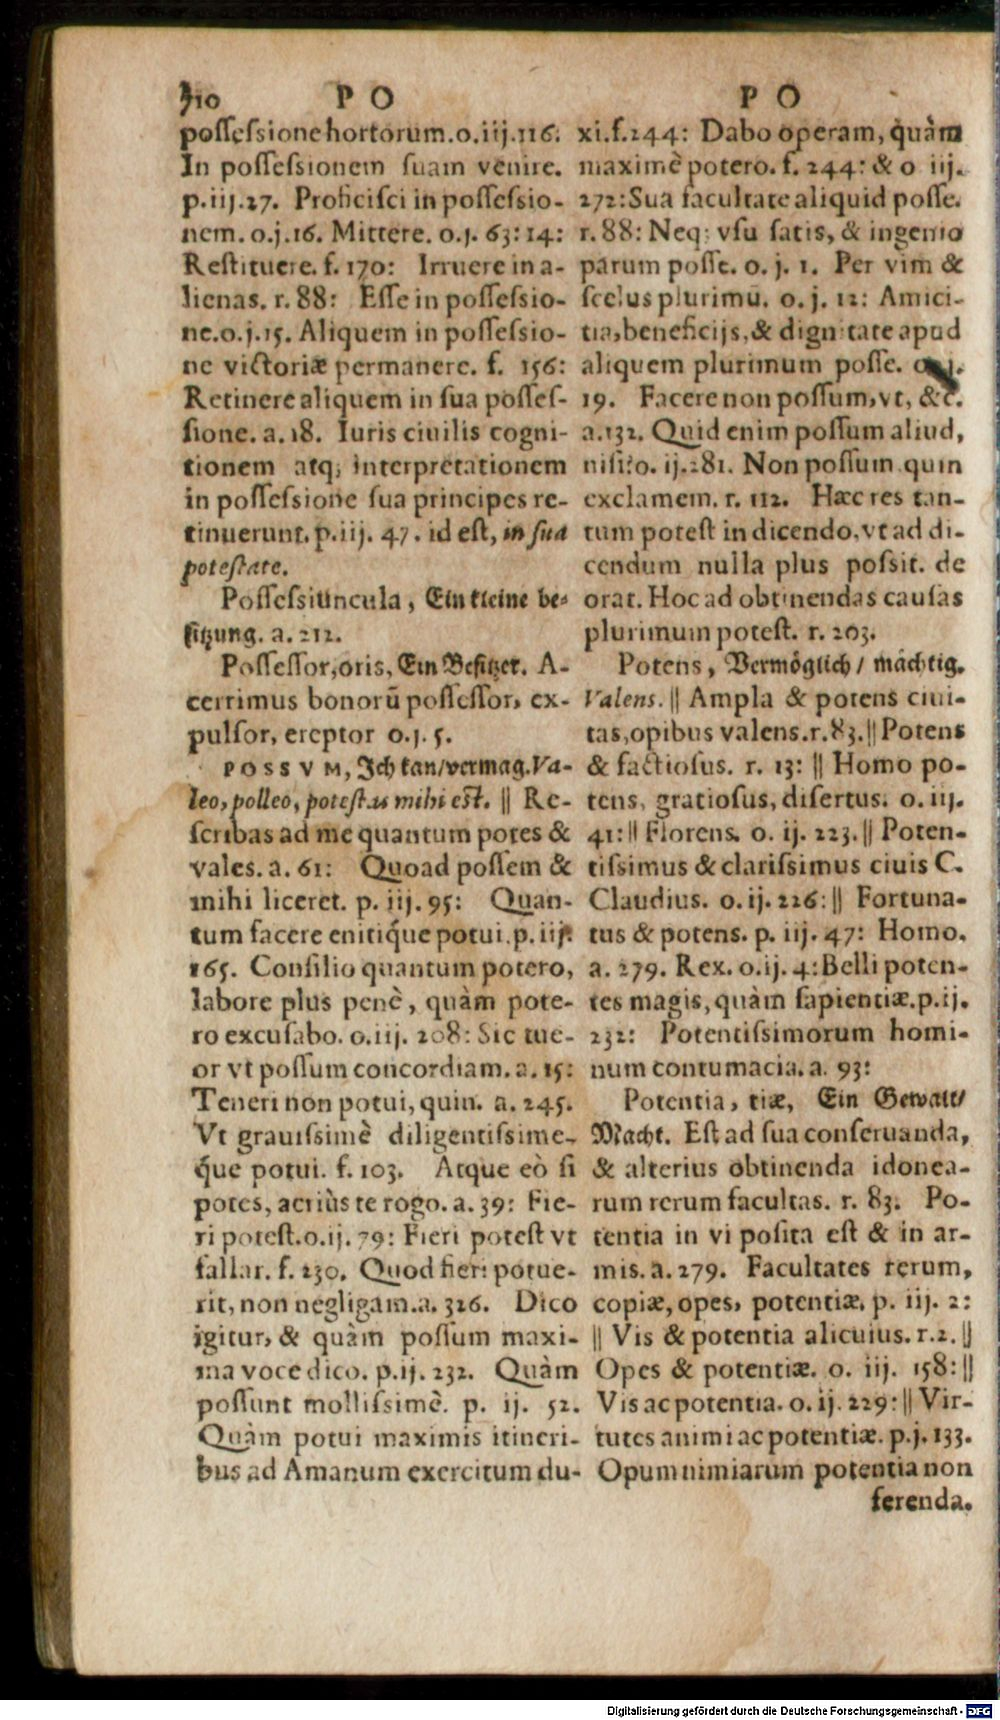 710 PO PO
possessione hortorum. o. iij. 116.
In possessionem suam venire.
p. iij. 27. Proficisci in possessio-
nem. o. j. 16. Mittere. o. j. 63: 14:
Restituere. f. 170: Irruere in a-
lienas. r. 88: Esse in possessio-
ne. o. j. 15. Aliquem in possessio-
ne victoriæ permanere. f. 156:
Retinere aliquem in sua posses-
sione. a. 18. Iuris ciuilis cogni-
tionem atq; interpretationem
in possessione sua principes re-
tinuerunt. p. iij. 47. id est, in sua
potestate.
Possessiuncula, Ein kleine be-
sitzung. a. 212.
Possessor, oris, Ein Besitzer. A-
cerrimus bonorū possessor, ex-
pulsor, ereptor o. j. 5.
POSSVM, Ich kan/vermag. Va-
leo, polleo, potestas mihi est. || Re-
scribas ad me quantum potes &
vales. a. 61: Quoad possem &
mihi liceret. p. iij. 95: Quan-
tum facere enitiq́ue potui. p. iij.
165. Consilio quantum potero,
labore plus penè, quàm pote-
ro excusabo. o. iij. 208: Sic tue-
or vt possum concordiam. a. 15:
Teneri non potui, quin. a. 245.
Vt grauissimè diligentissime-
q́ue potui. f. 103. Atque eò si
potes, acriùs te rogo. a. 39: Fie-
ri potest. o. ij. 79: Fieri potest vt
fallar. f. 230. Quod fieri potue-
rit, non negligam. a. 326. Dico
igitur, & quàm possum maxi-
ma voce dico. p. ij. 232. Quàm
possunt mollissimè. p. ij. 52.
Quàm potui maximis itineri-
bus ad Amanum exercitum du-
xi. f. 244: Dabo operam, quàm
maximè potero. f. 244: & o iij.
272: Sua facultate aliquid posse.
r. 88: Neq; vsu satis, & ingenio
parum posse. o. j. 1. Per vim &
scelus plurimū. o. j. 12: Amici-
tia, beneficijs, & dignitate apud
aliquem plurimum posse. o. j.
19. Facere non possum, vt, &c.
a. 132. Quid enim possum aliud,
nisi? o. ij. 281. Non possum quin
exclamem. r. 112. Hæc res tan-
tum potest in dicendo, vt ad di-
cendum nulla plus possit. de
orat. Hoc ad obtinendas causas
plurimum potest. r. 203.
Potens, Vermöglich/ mächtig.
Valens. || Ampla & potens ciui-
tas, opibus valens. r. 83. || Potens
& factiosus. r. 13: || Homo po-
tens, gratiosus, disertus. o. iij.
41: || Florens. o. ij. 223. || Poten-
tissimus & clarissimus ciuis C.
Claudius. o. ij. 226: || Fortuna-
tus & potens. p. iij. 47: Homo.
a. 279. Rex. o. ij. 4: Belli poten-
tes magis, quàm sapientiæ. p. ij.
232: Potentissimorum homi-
num contumacia. a. 93:
Potentia, tiæ, Ein Gewalt/
Macht. Est ad sua conseruanda,
& alterius obtinenda idonea-
rum rerum facultas. r. 83. Po-
tentia in vi posita est & in ar-
mis. a. 279. Facultates rerum,
copiæ, opes, potentiæ. p. iij. 2:
|| Vis & potentia alicuius. r. 2. ||
Opes & potentiæ. o. iij. 158: ||
Vis ac potentia. o. ij. 229: || Vir-
tutes animi ac potentiæ. p. j. 133.
Opum nimiarum potentia non
ferenda.
Digitalisierung gefördert durch die Deutsche Forschungsgemeinschaft - DFG